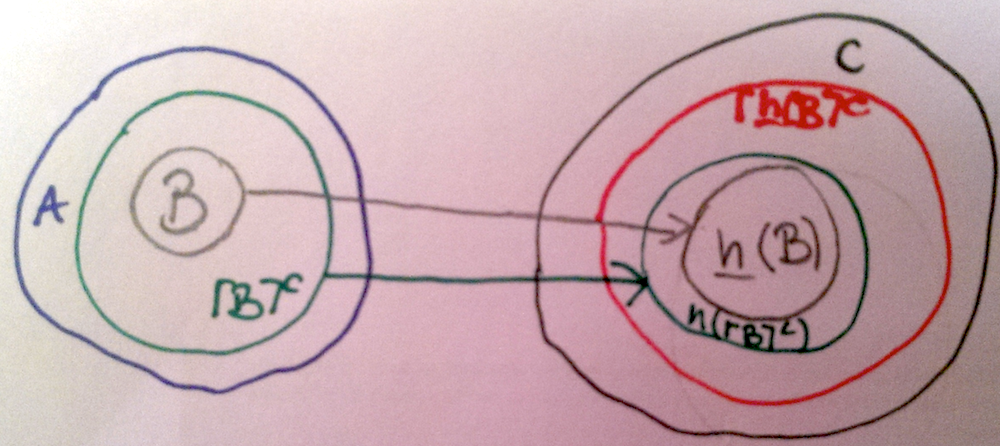 A
B
⌈B⌉ᶜ
C
⌈h⌈B⌉ᶜ
h(B)
h(⌈B⌉ᶜ)